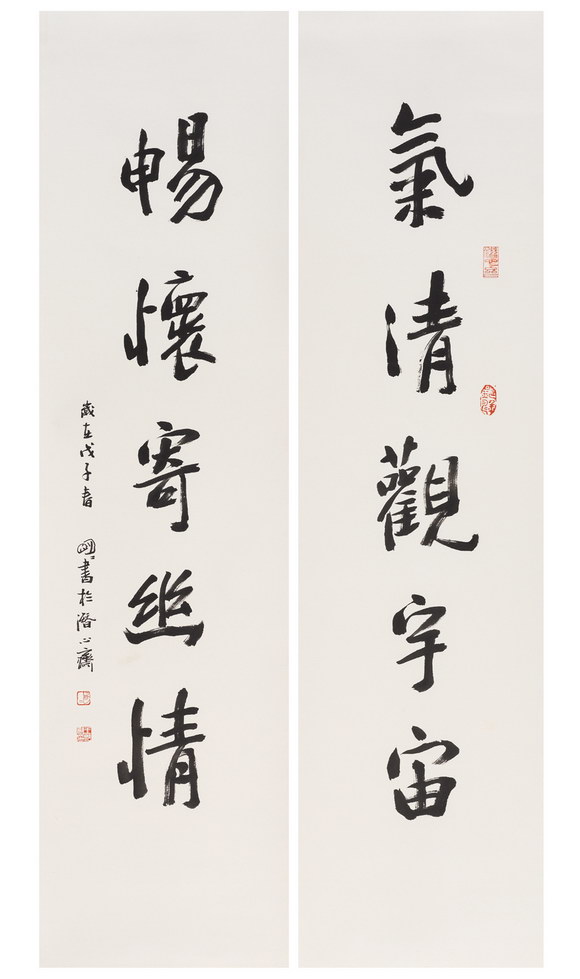 氣清觀宇宙
暢懷寄幽情
歲在戊子春
書於潛心齋